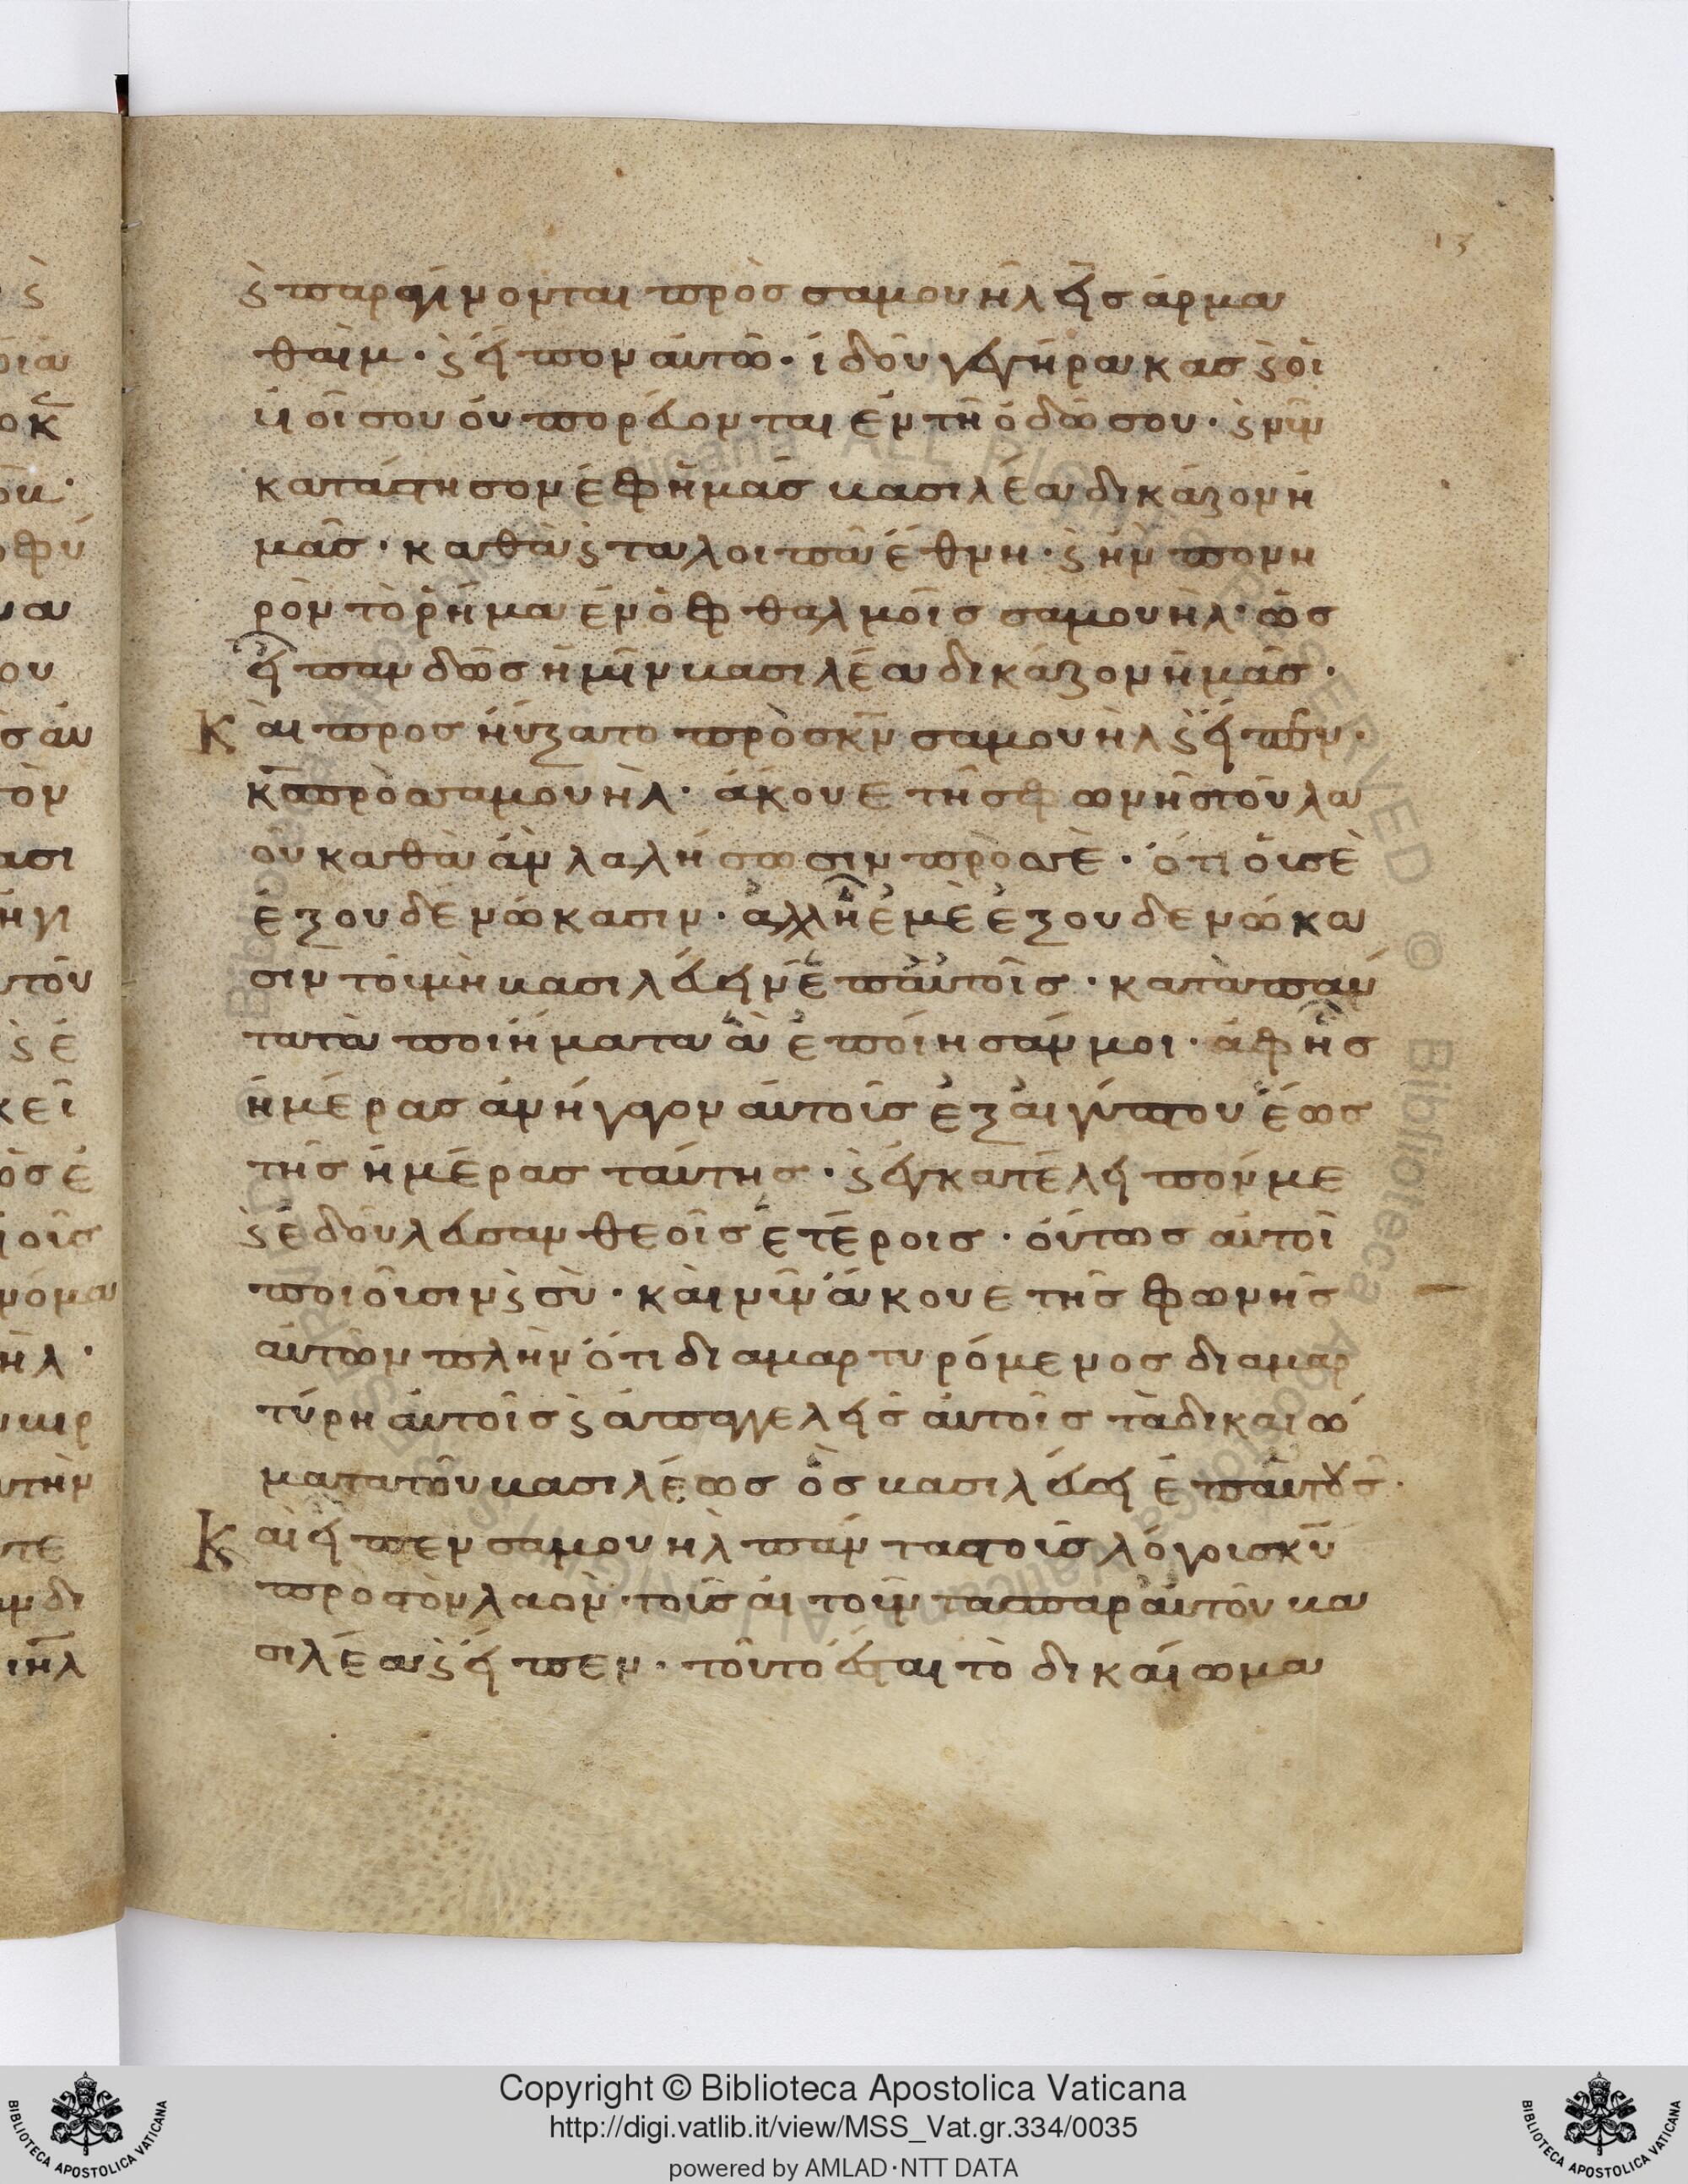 ϛ̀ παραγίνονται πρὸς σαμουὴλ εἰς ἀρμα
θαὶμ · ϛ̀ εἶπον αὐτῶ · ἰδοῦ γεγήρακας ϛ̀ οἱ
υἱοί σου οὐ πορεύονται ἐν τῆ ὁδῶ σου · ϛ̀ νῦν
κατάστησον ἐφ ἡμᾶς βασιλέα δικάζον ἡ
μᾶς · καθὰ ϛ̀ τα λοιπὰ ἔθνη · ϛ̀ ἦν πονη
ρὸν τὸ ῥῆμα ἐν ὀφθαλμοῖς σαμουὴλ · ὡς
εἶπαν δὸς ἡμῖν βασιλέα δικάζον ἡμᾶς ·
Καὶ προσηύξατο πρὸς κν̄ σαμουὴλ ϛ̀ εἶπεν ·
κς̄ πρὸς σαμουὴλ · ἄκουε τῆς φωνῆς τοῦ λα
οῦ καθὰ ἂν λαλήσωσιν πρός σὲ · ὅτι οὐ σὲ
ἐξουδενώκασιν · ἀλλ' ἢ ἐμὲ ἐξουδενώκα
σιν τοῦ μὴ βασιλεύειν ἐπ' αὐτοῖς · κατὰ πάν
τα τὰ ποιήματα ἃ ἐποίησάν μοι · ἀφ ἧς
ἡμέρας ἀνήγαγον αὐτοὺς ἐξ αἰγύπτου ἕως
τῆς ἡμέρας ταύτης · ϛ̀ ἐγκατέλειπόν με
ϛ̀ ἐδούλευσαν θεοῖς ἑτέροις · οὕτως αὐτοὶ
ποιοῦσιν ϛ̀ σὺ · καὶ νῦν ἄκουε τῆς φωνῆς
αὐτῶν πλὴν ὅτι διαμαρτυρόμενος διαμαρ
τύρη αὐτοῖς ϛ̀ ἀπαγγελεῖς αὐτοῖς τὰ δικαιώ
ματα τοῦ βασιλέως ὃς βασιλεύσει ἐπ' αὐτούς ·
Καὶ εἶπεν σαμουὴλ πάντας τοὺς λόγους κῡ
πρὸς τὸν λαὸν τοὺς αἰτοῦντας παρ' αὐτοῦ βα
σιλέα ϛ̀ εἶπεν · τοῦτο ἔσται τὸ δικαίωμα
13
Copyright © Biblioteca Apostolica Vaticana
http://digi.vatlib.it/view/MSS_Vat.gr.334/0035
powered by AMLAD·NTT DATA
BIBLIOTECA APOSTOLICA VATICANA
BIBLIOTECA APOSTOLICA VATICANA